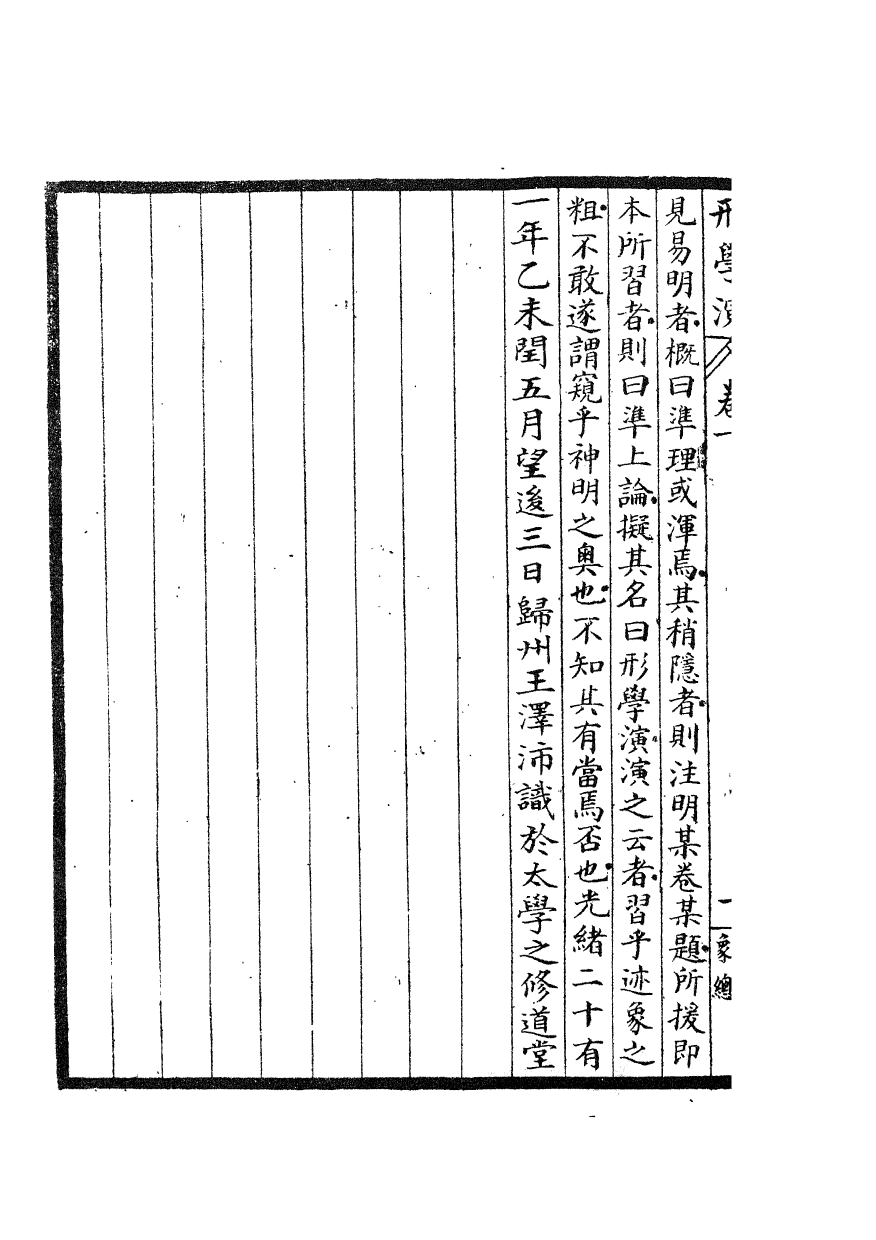 形學演 卷一 一 象總
見易明者概曰準理或渾焉其稍隱者則注明某卷某題所援即
本所習者則曰準上論擬其名曰形學演演之云者習乎迹象之
粗不敢遂謂窺乎神明之奧也不知其有當焉否也光緒二十有
一年乙未閏五月望後三日歸州王澤沛識於太學之修道堂